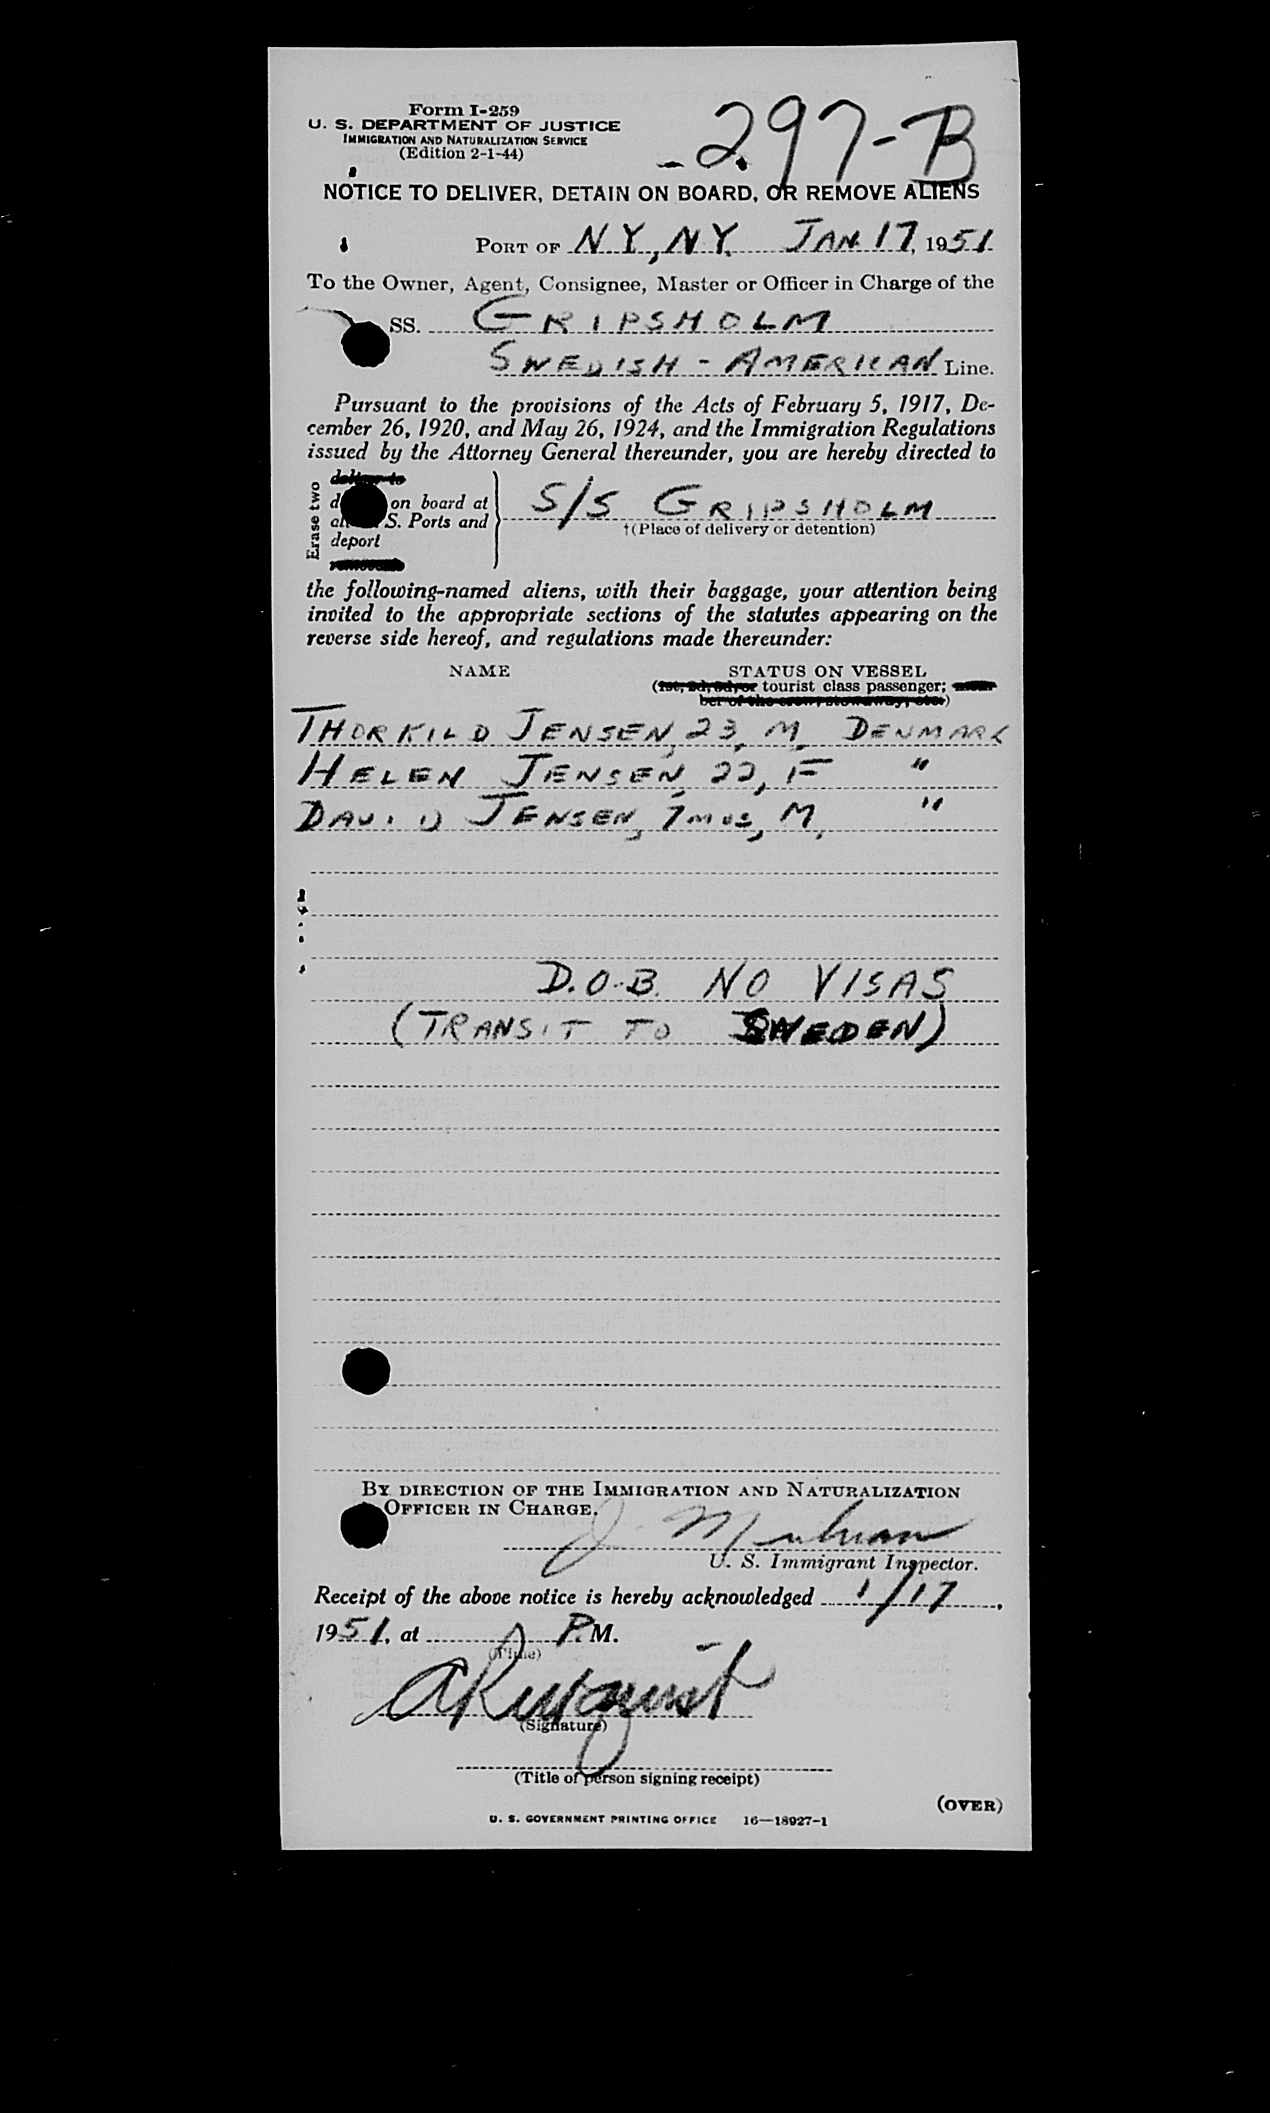 Form I-259
U. S. DEPARTMENT OF JUSTICE
IMMIGRATION AND NATURALIZATION SERVICE
(Edition 2-1-44)
297-B
NOTICE TO DELIVER, DETAIN ON BOARD, OR REMOVE ALIENS
PORT OF N.Y., N.Y. JAN. 17, 1951
To the Owner, Agent, Consignee, Master or Officer in Charge of the
SS. GRIPSHOLM
SWEDISH - AMERICAN Line.
Pursuant to the provisions of the Acts of February 5, 1917, De-
cember 26, 1920, and May 26, 1924, and the Immigration Regulations
issued by the Attorney General thereunder, you are hereby directed to
Erase two
deliver to
on board at
S. Ports and
deport
S/S GRIPSHOLM
†(Place of delivery or detention)
the following-named aliens, with their baggage, your attention being
invited to the appropriate sections of the statutes appearing on the
reverse side hereof, and regulations made thereunder:
NAME STATUS ON VESSEL
(1st, 2d, 3d, or tourist class passenger; mem-
ber of the crew, stowaway, etc.)
THORKILD JENSEN, 23, M, DENMARK
HELEN JENSEN, 22, F "
DAVID JENSEN, 7 mos, M, "
D.O.B. NO VISAS
(TRANSIT TO SWEDEN)
BY DIRECTION OF THE IMMIGRATION AND NATURALIZATION
OFFICER IN CHARGE.
J.
U. S. Immigrant Inspector.
Receipt of the above notice is hereby acknowledged 1/17,
1951, at P.M.
(Time)
(Signature)
(Title of person signing receipt)
(OVER)
U. S. GOVERNMENT PRINTING OFFICE 16—18927-1